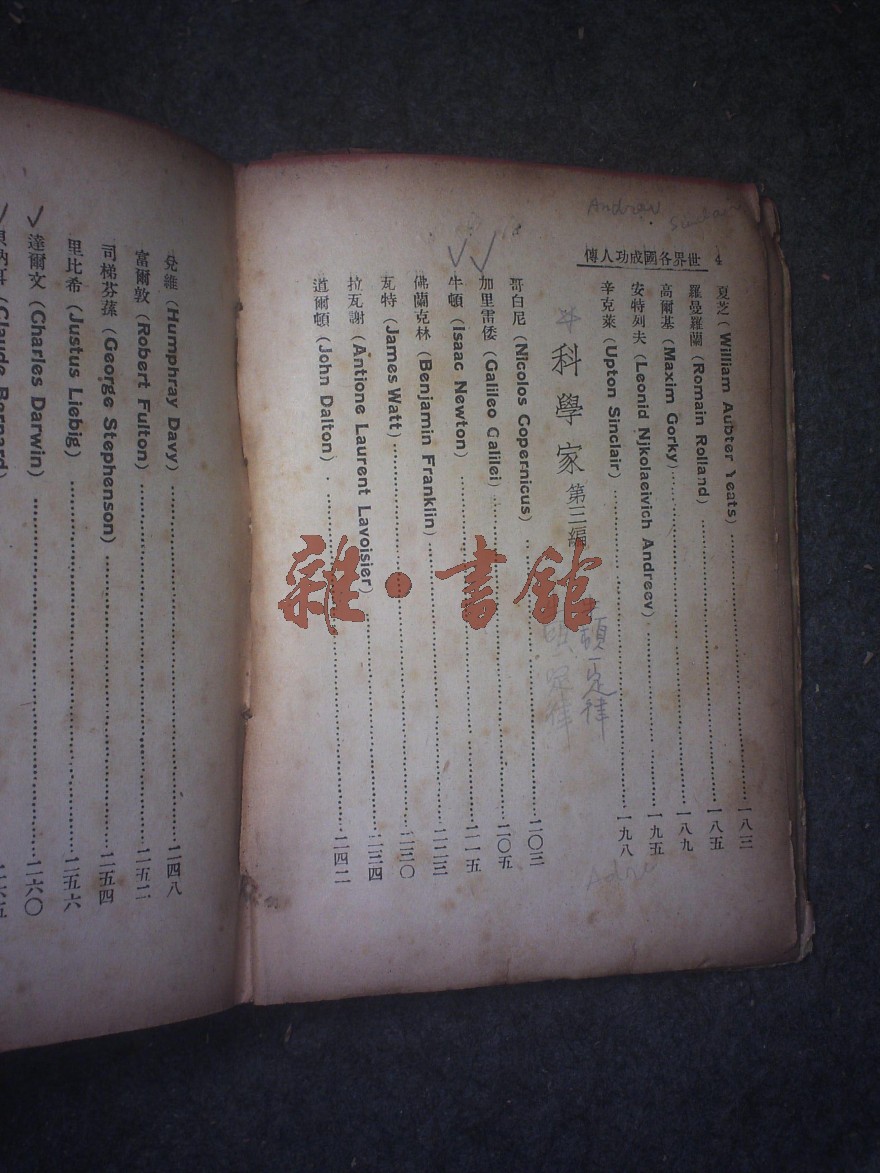 4 世界各國成功人傳
夏芝 (William Aubter Yeats)……一八三
羅曼羅蘭 (Romain Rolland)……一八五
高爾基 (Maxim Gorky)……一八九
安特列夫 (Leonid Njkolaeivich Andreev)……一九五
辛克萊 (Upton Sinclair)……一九八
科學家 第三編
頓定律
定律
哥白尼 (Nicolos Copernicus)……二〇三
加里雷倭 (Galileo Galilei)……二〇五
牛頓 (Isaac Newton)……二一五
佛蘭克林 (Benjamin Franklin)……二二三
瓦特 (James Watt)……二三〇
拉瓦謝 (Antione Laurent Lavoisier)……二三四
道爾頓 (John Dalton)……二四二
兌維 (Humphray Davy)……二四八
富爾敦 (Robert Fulton)……二五二
司梯芬蓀 (George Stephenson)……二五四
里比希 (Justus Liebig)……二五六
達爾文 (Charles Darwin)……二六〇
(Claude Bernard)
Andrew
雜·書館